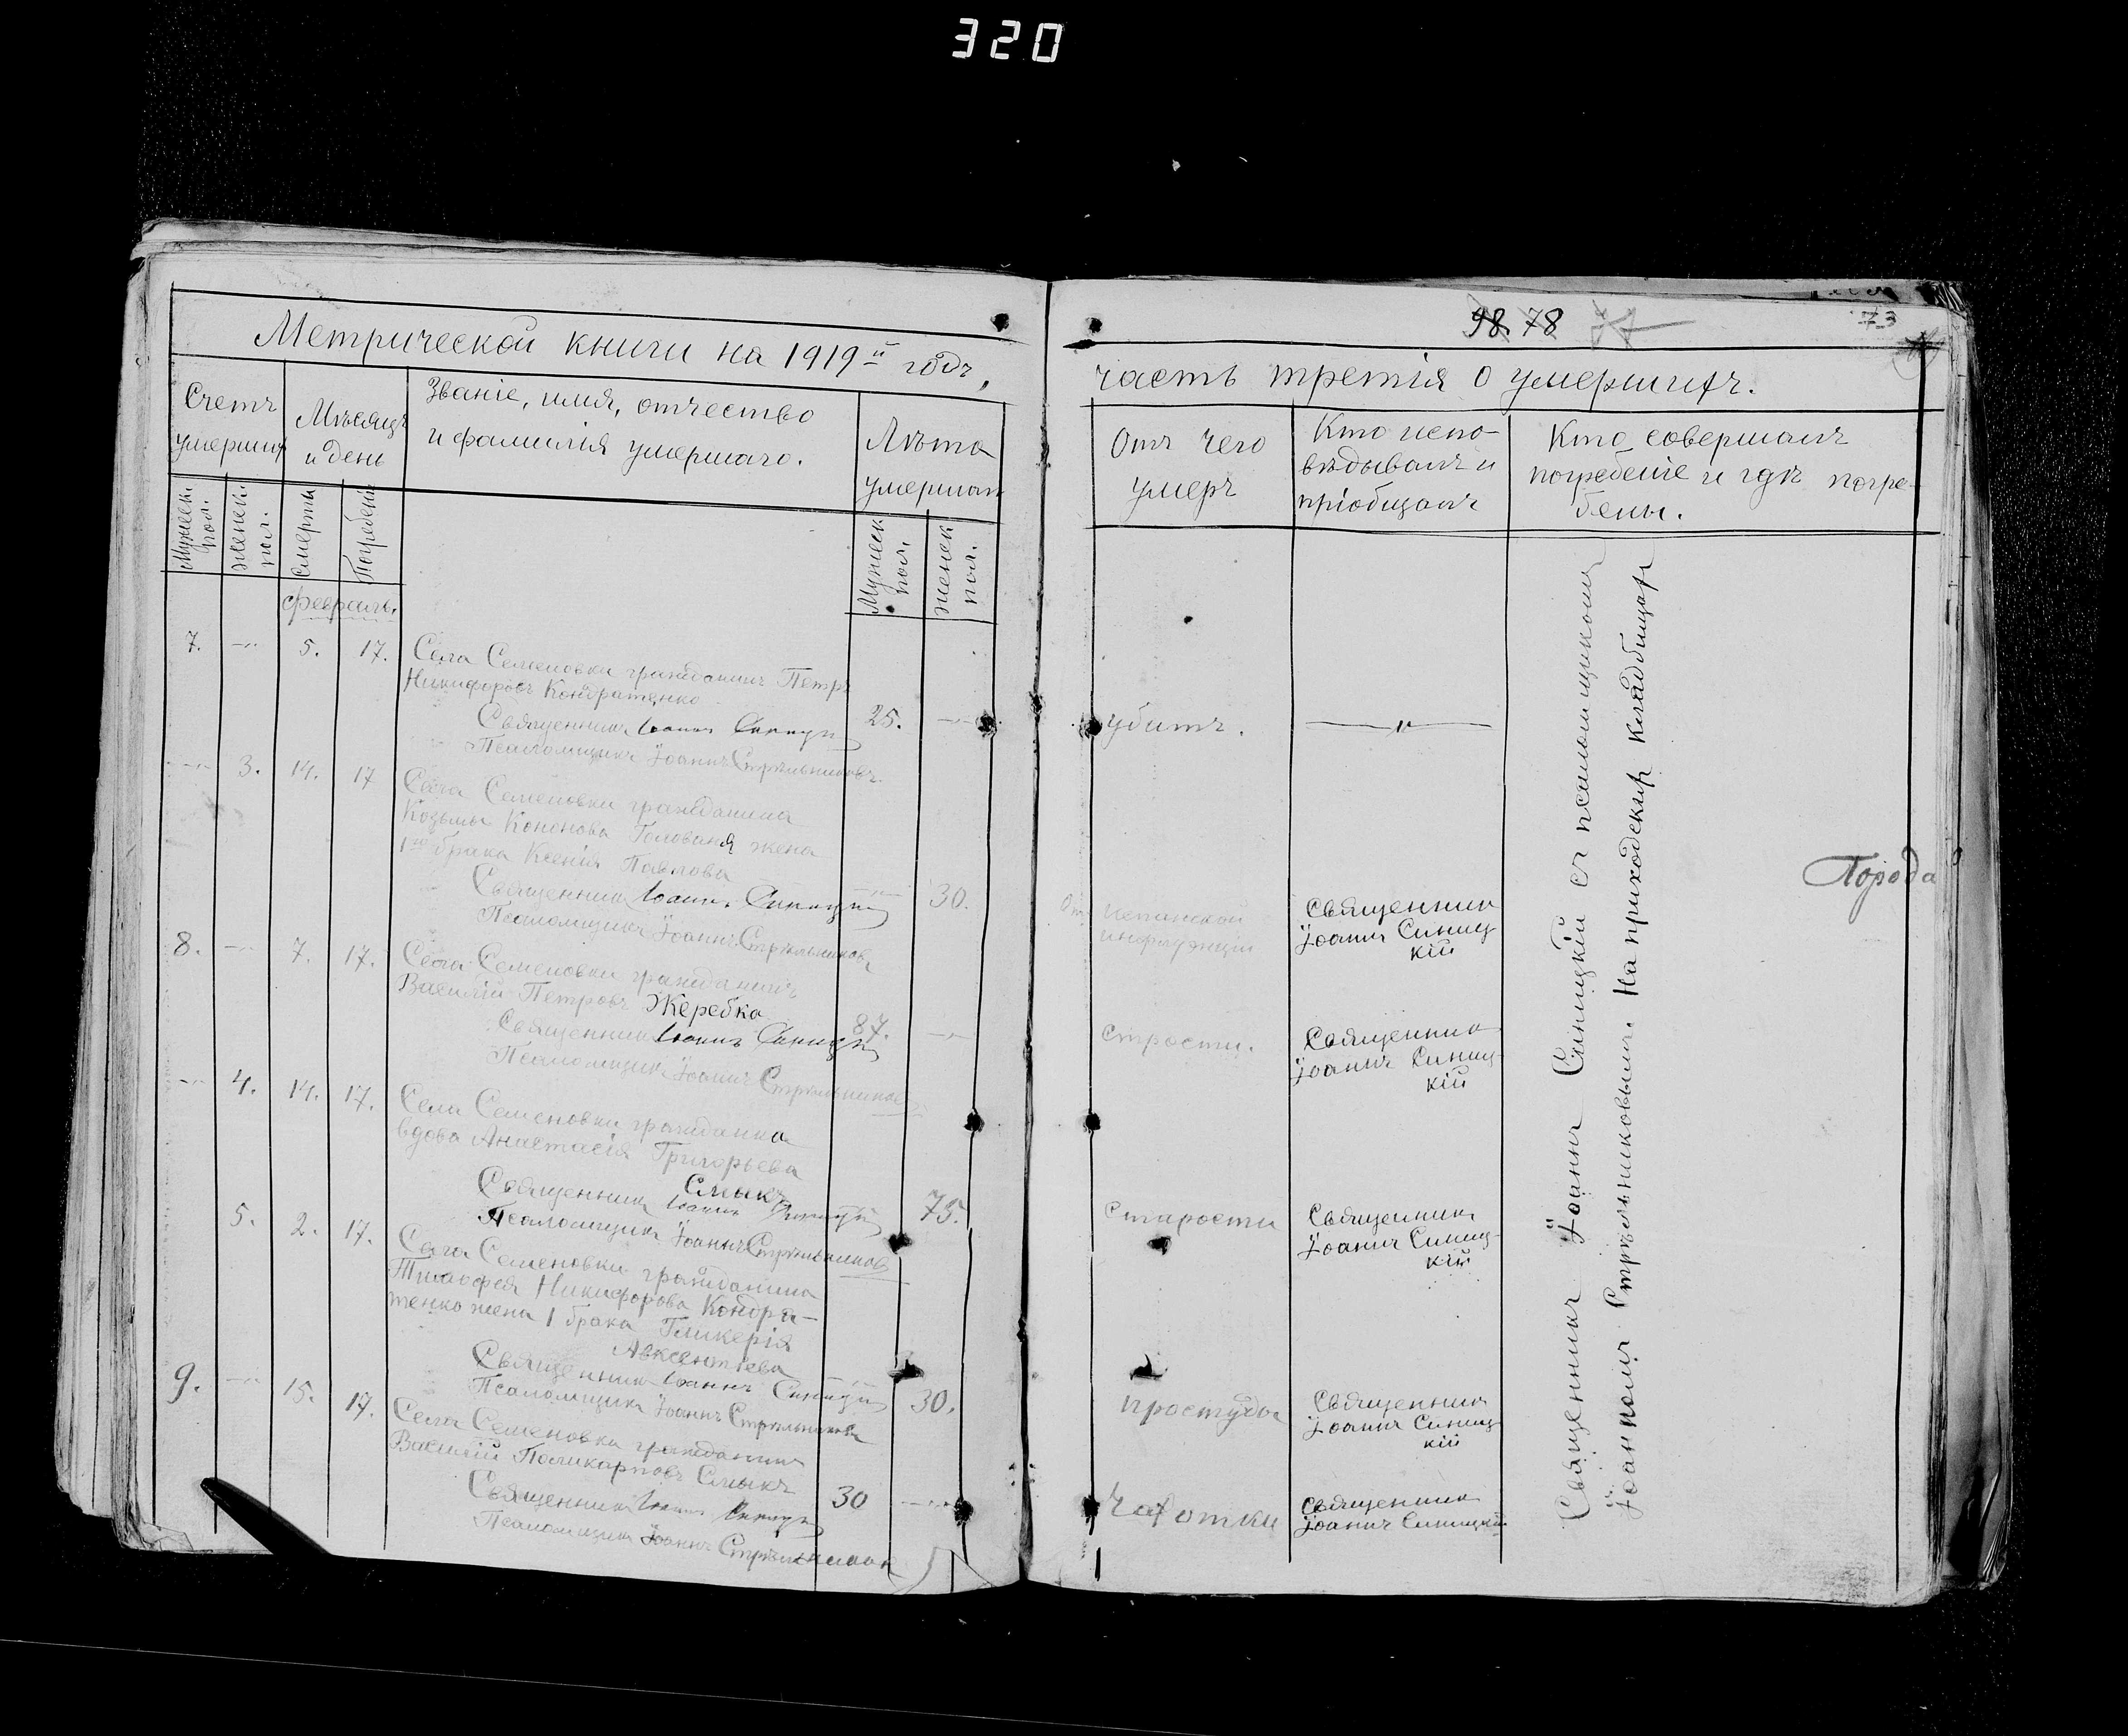 320
98 78
73
Метрической книги на 1919й годъ,
Счетъ
умершихъ
Мѣсяцъ
и день
Званіе, имя, отчество
и фамилія умершаго.
Лѣта
умершаго
Мужеск.
пол.
женск.
пол.
Смерти
Погребенія
Мужеск
пол.
женск
пол.
февраль.
7. -"- 5. 17. Села Семеновки гражданинъ Петръ
Никифоровъ Кондратенко
Священникъ Іоаннъ Синицкій 25. -"-
Псаломщикъ Іоаннъ Стрѣльниковъ
-"- 3. 14. 17 Села Семеновки гражданина
Козьмы Кононова Голованя жена
1го брака Ксенія Павлова
Священникъ Іоаннъ Синицкій -"- 30.
Псаломщикъ Іоаннъ Стрѣльниковъ
8. -"- 7. 17. Села Семеновки гражданинъ
Василій Петровъ Жеребко
Священникъ Іоаннъ Синицкій 87. -"-
Псаломщикъ Іоаннъ Стрѣльниковъ
-"- 4. 14. 17. Села Семеновки гражданка
вдова Анастасія Григорьева
Смыкъ
Священникъ Іоаннъ Синицкій 75.
Псаломщикъ Іоаннъ Стрѣльниковъ
5. 2. 17. Села Семеновки гражданина
Тимофея Никифорова Кондра-
тенко жена 1 брака Гликерія
Авксентіева
Священникъ Іоаннъ Синицкій -"- 30.
Псаломщикъ Іоаннъ Стрѣльниковъ
9. -"- 15. 17. Села Семеновки гражданинъ
Василій Поликарповъ Смыкъ
Священникъ Іоаннъ Синицкій 30 -"-
Псаломщикъ Іоаннъ Стрѣльниковъ
часть третія о умершихъ.
Отъ чего
умеръ
Кто испо-
вѣдывалъ и
пріобщалъ
Кто совершалъ
погребеніе и гдѣ погре-
бены.
убитъ. -"-
От испанской
инфлуэнціи
Священникъ
Іоаннъ Синиц
кій
Строcти.
Священникъ
Іоаннъ Синиц-
кій
Старости
Священникъ
Іоаннъ Синиц-
кій
простуды
Священникъ
Іоаннъ Синиц
кій
Чахотки
Священникъ
Іоаннъ Синицкій
Священникъ Іоаннъ Синицкій съ псаломщикомъ
Іоанномъ Стрѣльниковымъ. На приходскомъ кладбищѣ